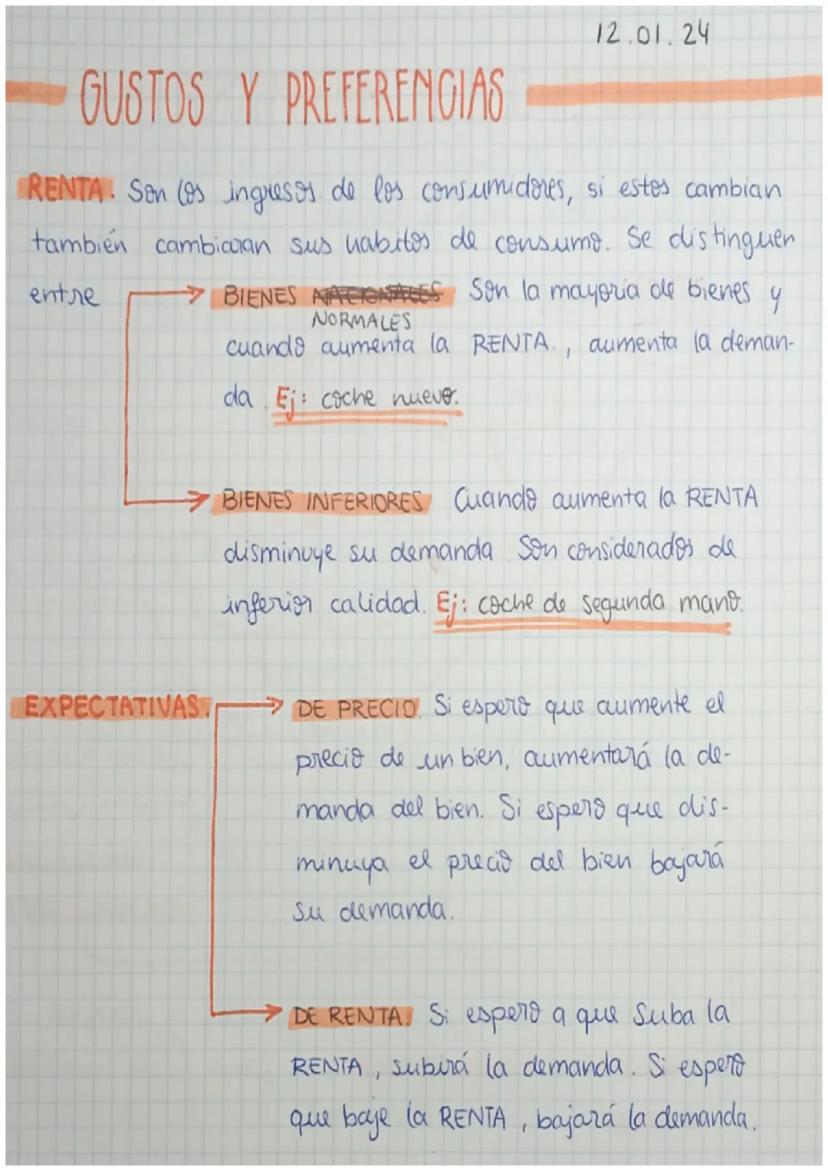 12.01.24
GUSTOS Y PREFERENCIAS
RENTA. Son los ingresos de los consumidores, si estos cambian
también cambiaran sus habitos de consumo. Se distinguen
entre
BIENES NACIONALES Son la mayoría de bienes y
NORMALES
cuando aumenta la RENTA., aumenta la deman-
da. Ej: coche nuevo.
BIENES INFERIORES Cuando aumenta la RENTA
disminuye su demanda Son considerados de
inferior calidad. Ej: coche de segunda mano.
EXPECTATIVAS.
DE PRECIO. Si espero que aumente el
precio de un bien, aumentará la de-
manda del bien. Si espero que dis-
minuya el precio del bien bajará
su demanda.
DE RENTA. Si espero a que suba la
RENTA, subirá la demanda. Si espero
que baje la RENTA, bajará la demanda.